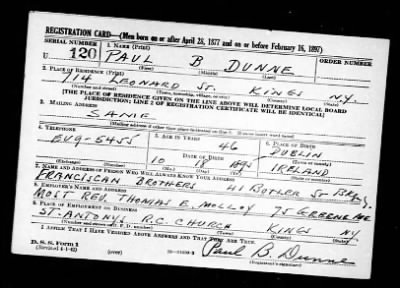 REGISTRATION CARD—(Men born on or after April 28, 1877 and on or before February 16, 1897)
SERIAL NUMBER 1. NAME (Print) ORDER NUMBER
U 120 PAUL B DUNNE
(First) (Middle) (Last)
2. PLACE OF RESIDENCE (Print)
714 LEONARD ST. KINGS N.Y.
(Number and street) (Town, township, village, or city) (County) (State)
[THE PLACE OF RESIDENCE GIVEN ON THE LINE ABOVE WILL DETERMINE LOCAL BOARD
JURISDICTION; LINE 2 OF REGISTRATION CERTIFICATE WILL BE IDENTICAL]
3. MAILING ADDRESS
SAME
[Mailing address if other than place indicated on line 2. If same insert word same]
4. TELEPHONE 5. AGE IN YEARS 6. PLACE OF BIRTH
46 DUBLIN
EV9-5455 DATE OF BIRTH (Town or county)
10 18 1895 IRELAND
(Exchange) (Number) (Mo.) (Day) (Yr.) (State or country)
7. NAME AND ADDRESS OF PERSON WHO WILL ALWAYS KNOW YOUR ADDRESS
FRANCISCAN BROTHERS 41 BUTLER ST
8. EMPLOYER'S NAME AND ADDRESS
MOST REV. THOMAS E. MOLLOY 75 GREENE AVE
9. PLACE OF EMPLOYMENT OR BUSINESS
ST. ANTONYS R.C. CHURCH KINGS N.Y.
(Number and street or R. F. D. number) (Town) (County) (State)
I AFFIRM THAT I HAVE VERIFIED ABOVE ANSWERS AND THAT THEY ARE TRUE.
D. S. S. Form 1
(Revised 4-1-42) Paul B. Dunne
(Registrant's signature)